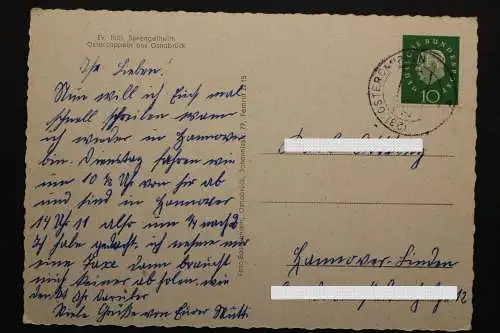 Ev. Ruts. Sprengelheim
Ostercappeln bei Osnabrück
Ihr Lieben!
Nun will ich Euch mal
schnell schreiben wann
ich wieder in Hannover
bin. Dienstag fahren wir
um 10 Uhr von hir ab
und sind in Hannover
14 Uhr 11 also um ¼ nach 2
Ich habe gedacht ich nehme mir
eine Taxe dann braucht
mich keiner ab holen, wie
denkt Ihr darüber
Viele Grüße von Eurer Mutti
Osnabrück, Johannisstr. 79, Fernruf
DEUTSCHE BUNDESPOST
10
OSTERCAPPELN
(23)
Hannover-Linden
12